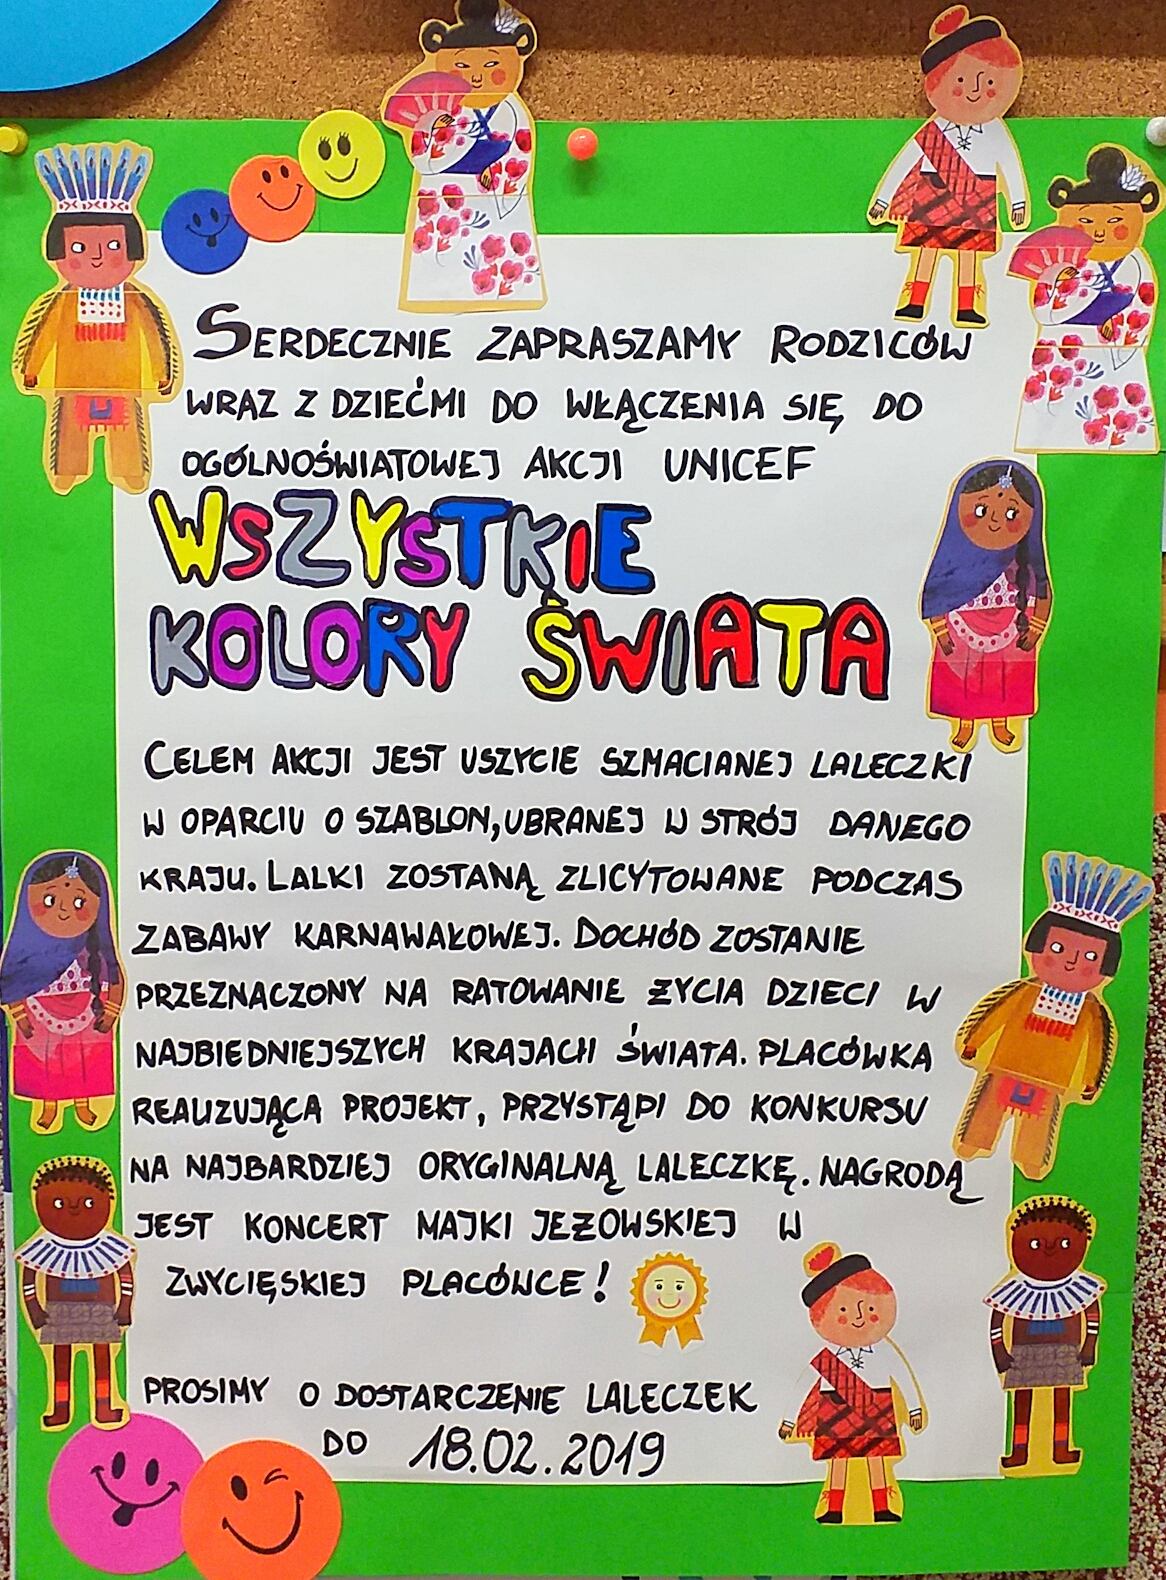 SERDECZNIE ZAPRASZAMY RODZICÓW
WRAZ Z DZIEĆMI DO WŁĄCZENIA SIĘ DO
OGÓLNOŚWIATOWEJ AKCJI UNICEF
WSZYSTKIE
KOLORY ŚWIATA
CELEM AKCJI JEST USZYCIE SZMACIANEJ LALECZKI
W OPARCIU O SZABLON, UBRANEJ W STRÓJ DANEGO
KRAJU. LALKI ZOSTANĄ ZLICYTOWANE PODCZAS
ZABAWY KARNAWAŁOWEJ. DOCHÓD ZOSTANIE
PRZEZNACZONY NA RATOWANIE ŻYCIA DZIECI W
NAJBIEDNIEJSZYCH KRAJACH ŚWIATA. PLACÓWKA
REALIZUJĄCA PROJEKT, PRZYSTĄPI DO KONKURSU
NA NAJBARDZIEJ ORYGINALNĄ LALECZKĘ. NAGRODĄ
JEST KONCERT MAJKI JEŻOWSKIEJ W
ZWYCIĘSKIEJ PLACÓWCE!
PROSIMY O DOSTARCZENIE LALECZEK
DO 18.02.2019